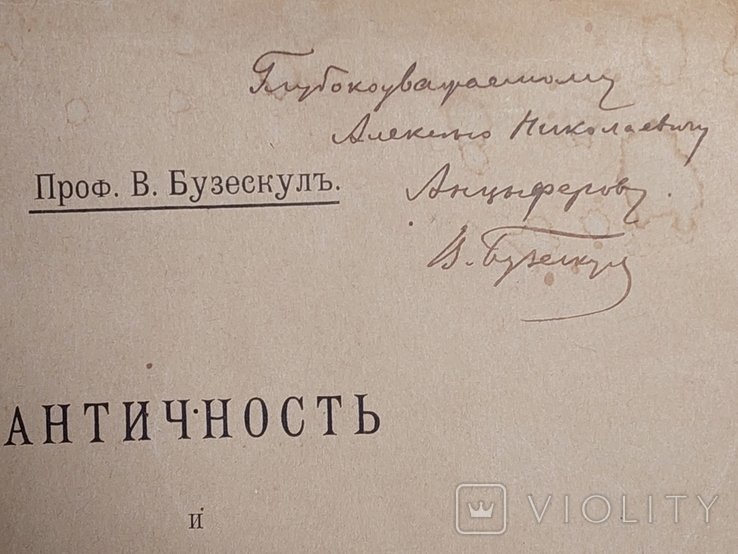 Глубокоуважаемому
Алексею Николаевичу
Анцыферову.
В. Бузескул
Проф. В. Бузескулъ.
АНТИЧНОСТЬ
и
VIOLITY